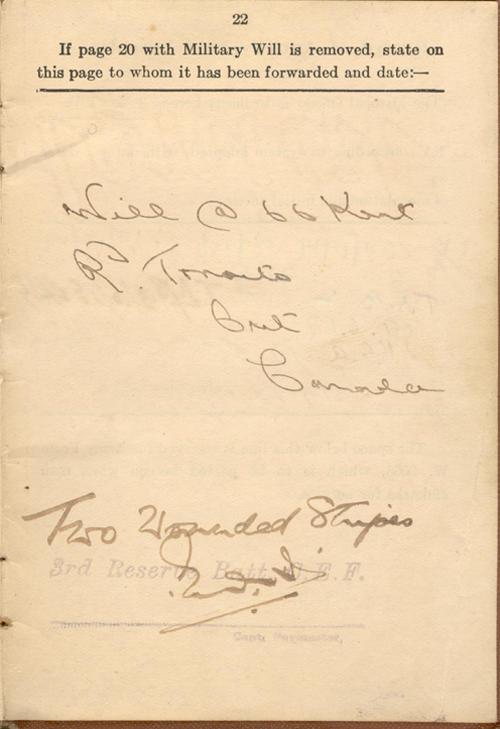 22
If page 20 with Military Will is removed, state on
this page to whom it has been forwarded and date:—
Will @ 66 Kent
Rd. Toronto
Ont
Canada
Two Wounded Stripes
3rd Reserve Batt. C. E. F.
Capt. Paymaster,